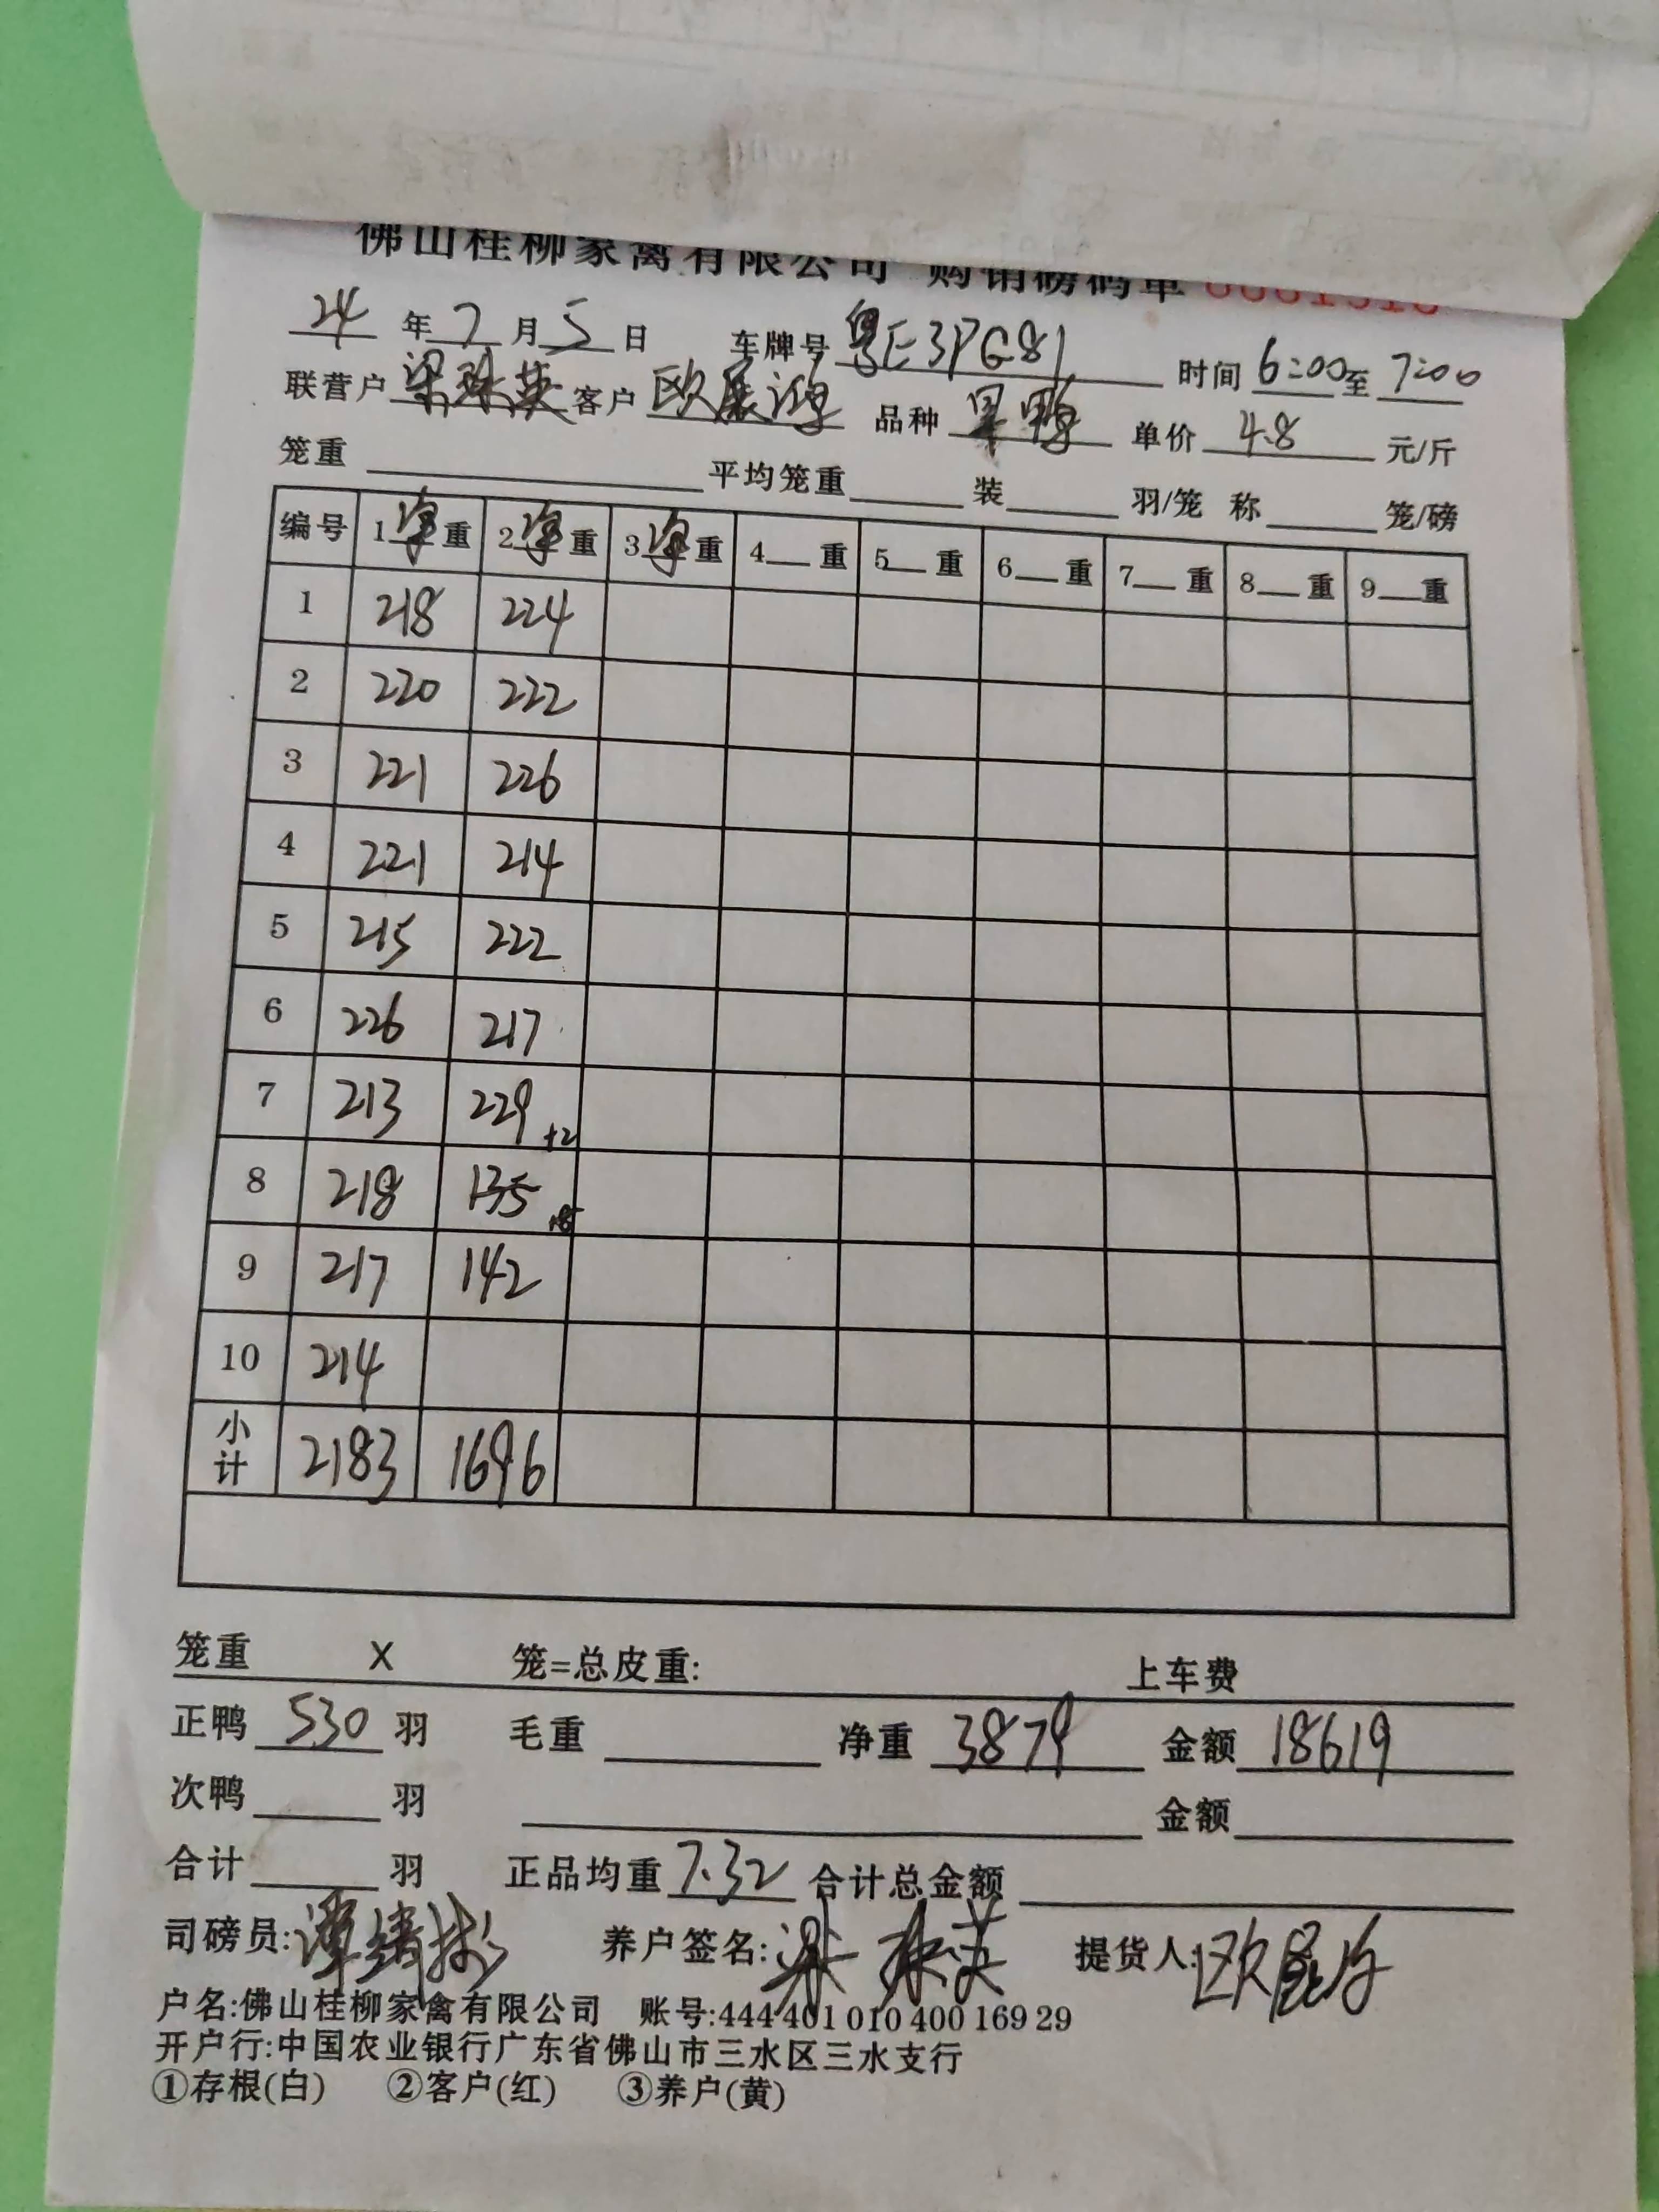 佛山桂柳家禽有限公司 购销磅码单
24年7月5日 车牌号 粤E3PG81 时间 6:00至7:00
联营户 梁珠英 客户 欧展鸿 品种 单价 4.8 元/斤
笼重 平均笼重 装 羽/笼 称 笼/磅
编号 1净重 2净重 3净重 4__重 5__重 6__重 7__重 8__重 9__重
1 218 224
2 220 222
3 221 226
4 221 214
5 215 222
6 226 217
7 213 229 +2
8 218 135
9 217 142
10 214
小计 2183 1696
笼重 X 笼=总皮重: 上车费
正鸭 530 羽 毛重 净重 3879 金额 18619
次鸭 羽 金额
合计 羽 正品均重 7.32 合计总金额
司磅员: 养户签名: 梁珠英 提货人:
户名:佛山桂柳家禽有限公司 账号:444 401 010 400 169 29
开户行:中国农业银行广东省佛山市三水区三水支行
①存根(白) ②客户(红) ③养户(黄)